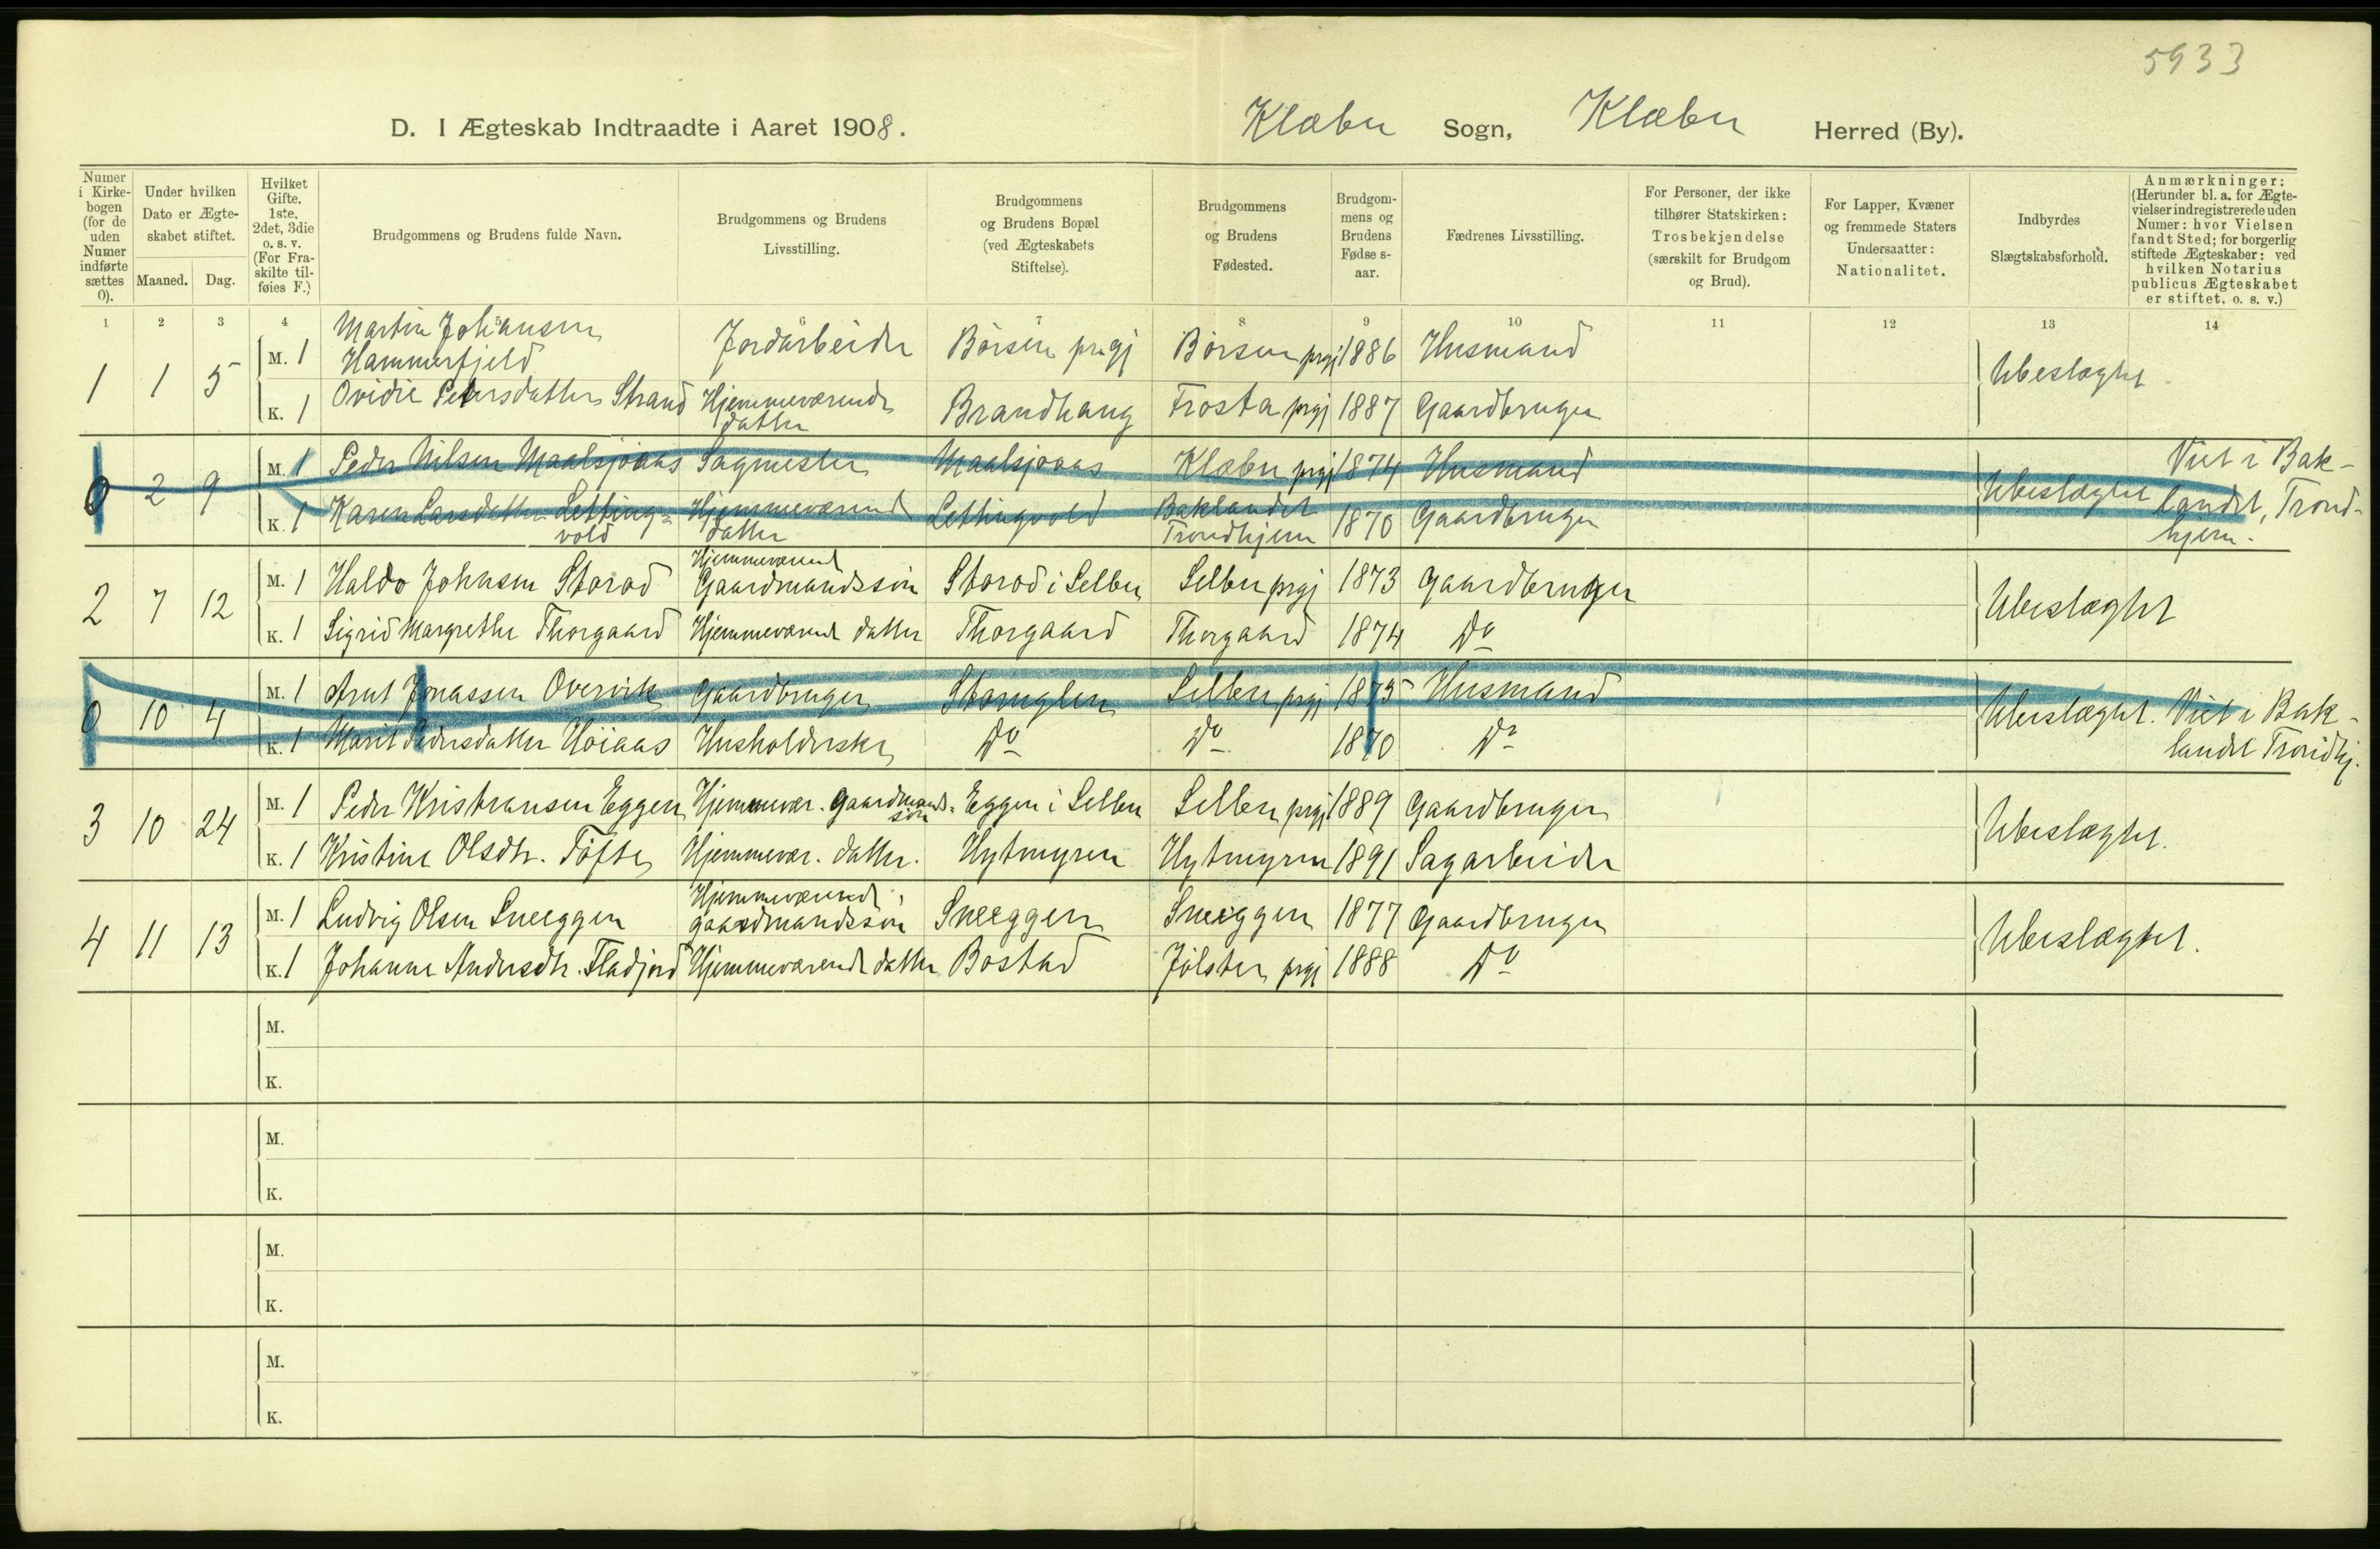 5933
D. I Ægteskab Indtraadte i Aaret 1908. Klæbu Sogn, Klæbu Herred (By).
Numer i Kirkebogen (for de uden Numer indførte sættes 0).
Under hvilken Dato er Ægteskabet stiftet. Maaned. Dag.
Hvilket Gifte. 1ste. 2det, 3die o. s. v. (For Fraskilte tilføies F.)
Brudgommens og Brudens fulde Navn.
Brudgommens og Brudens Livsstilling.
Brudgommens og Brudens Bopæl (ved Ægteskabets Stiftelse).
Brudgommens og Brudens Fødested.
Brudgommens og Brudens Fødselsaar.
Fædrenes Livsstilling.
For Personer, der ikke tilhører Statskirken: Trosbekjendelse (særskilt for Brudgom og Brud).
For Lapper, Kvæner og fremmede Staters Undersaatter: Nationalitet.
Indbyrdes Slægtskabsforhold.
Anmærkninger: (Herunder bl. a. for Ægtevielser indregistrerede uden Numer: hvor Vielsen fandt Sted; for borgerlig stiftede Ægteskaber: ved hvilken Notarius publicus Ægteskabet er stiftet. o. s. v.)
1 2 3 4 5 6 7 8 9 10 11 12 13 14
1 1 5 M. 1 Martin Johansen Hammerfjeld Jordarbeider Börsen prgj Börsen prgj 1886 Husmand Ubeslægtet
K. 1 Ovidie Petersdatter Strand Hjemmeværende datter Brandhaug Frosta prgj 1887 Gaardbruger
0 2 9 M. 1 Peder Nilsen Maalsjøaas Sagmester Maalsjøaas Klæbu prgj 1874 Husmand Ubeslægtet Viet i Bak-
landet, Trond-
hjem.
K. 1 Karen Larsdatter Lettingvold Hjemmeværend datter Lettingvold Baklandet Trondhjem 1870 Gaardbruger
2 7 12 M. 1 Haldo Johnsen Storød Hjemmeværend Gaardmandssön Storød i Selbu Selbu prgj 1873 Gaardbruger Ubeslægtet
K. 1 Sigrid Margrethe Thorgaard Hjemmeværend datter Thorgaard Thorgaard 1874 Do
0 10 4 M. 1 Arnt Jonassen Overvik Gaardbruger Selbu prgj 1875 Husmand Ubeslægtet. Viet i Bak-
landet Trondhj.
K. 1 Marit Pedersdatter Höiaas Husholderske Do Do 1870 Do
3 10 24 M. 1 Peder Kristiansen Eggen Hjemmevær. Gaardmands- sön Eggen i Selbu Selbu prgj 1889 Gaardbruger Ubeslægtet.
K. 1 Kristine Olsdtr. Töfte Hjemmevær. datter. Hytmyren Hytmyren 1891 Sagarbeider
4 11 13 M. 1 Ludvig Olsen Sneeggen Hjemmeværend gaardmandssön Sneeggen Sneeggen 1877 Gaardbruger Ubeslægtet.
K. 1 Johanne Andersdtr. Fladjord Hjemmeværende datter Bostad Jölster prgj 1888 Do
M.
K.
M.
K.
M.
K.
M.
K.